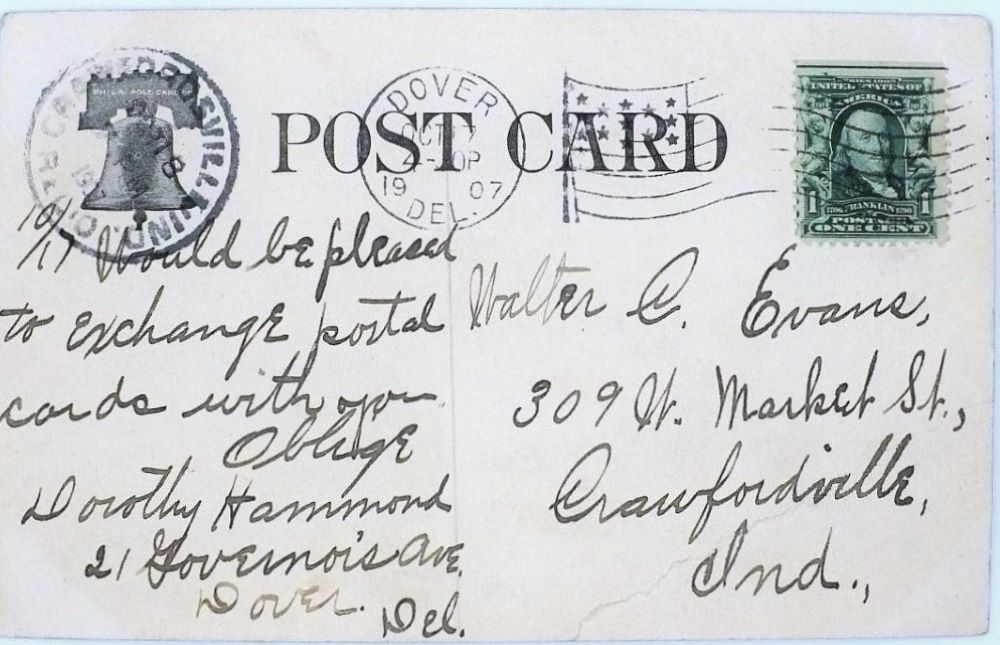 CRAWFORDSVILLE, IND.
REC'D.
PHILA. POST CARD CO
POST CARD
DOVER
OCT 17
4-30P
1907
DEL.
SERIES 1902
UNITED STATES OF
AMERICA
1706 FRANKLIN 1790
1 POSTAGE 1
ONE CENT
10/17 Would be pleased
to exchange postal
cards with you.
Oblige
Dorothy Hammond
21 Governois Ave.
Dover.
Del.
Walter C. Evans,
309 W. Market St.,
Crawfordville,
Ind.,